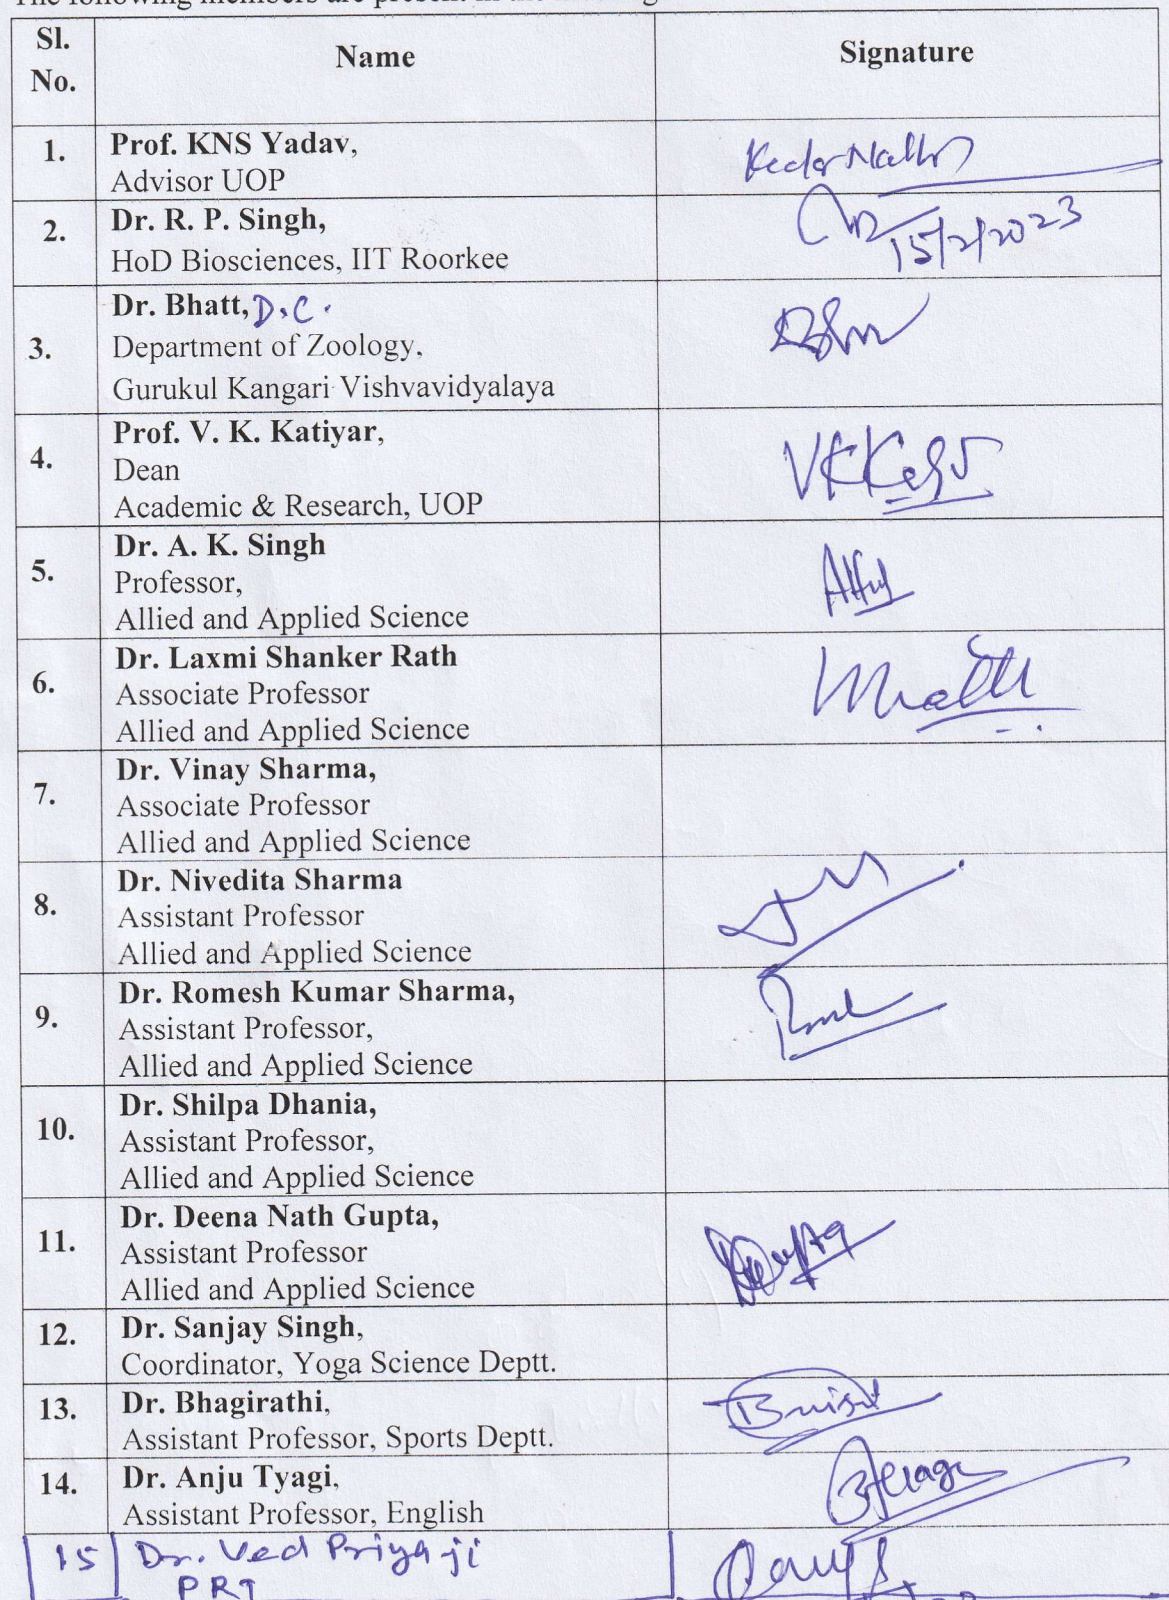 Sl.
No.
Name
Signature
1.
Prof. KNS Yadav,
Advisor UOP
Kedar Nath
2.
Dr. R. P. Singh,
HoD Biosciences, IIT Roorkee
15/2/2023
3.
Dr. Bhatt, D.C.
Department of Zoology,
Gurukul Kangari Vishvavidyalaya
4.
Prof. V. K. Katiyar,
Dean
Academic & Research, UOP
5.
Dr. A. K. Singh
Professor,
Allied and Applied Science
6.
Dr. Laxmi Shanker Rath
Associate Professor
Allied and Applied Science
7.
Dr. Vinay Sharma,
Associate Professor
Allied and Applied Science
8.
Dr. Nivedita Sharma
Assistant Professor
Allied and Applied Science
9.
Dr. Romesh Kumar Sharma,
Assistant Professor,
Allied and Applied Science
10.
Dr. Shilpa Dhania,
Assistant Professor,
Allied and Applied Science
11.
Dr. Deena Nath Gupta,
Assistant Professor
Allied and Applied Science
12.
Dr. Sanjay Singh,
Coordinator, Yoga Science Deptt.
13.
Dr. Bhagirathi,
Assistant Professor, Sports Deptt.
14.
Dr. Anju Tyagi,
Assistant Professor, English
15
Dr. Ved Priya ji
PRT